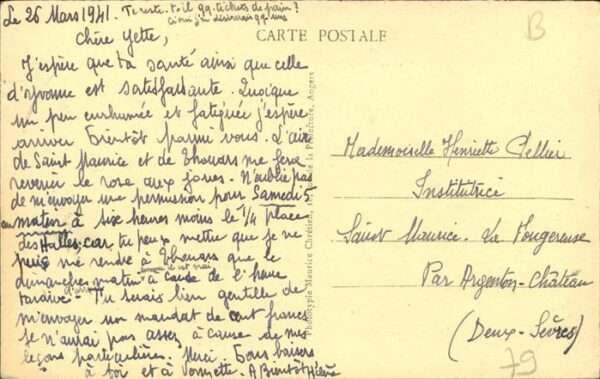 Le 26 Mars 1941. Te reste-t-il qq. tickets de pain?
Si oui j'en désirerais qq. uns
Chère Yette,
J'espère que ta santé ainsi que celle
d'Yvonne est satisfaisante. Quoique
un peu enrhumée et fatiguée j'espère
arriver bientôt parmi vous. L'air
de Saint Maurice et de Thouars me fera
revenir le rose aux joues. N'oublie pas
de m'envoyer une permission pour Samedi 5
au matin à six heures moins le 1/4 place
des Halles, car tu peux mettre que je ne
puis me rendre à Thouars que le
dimanche matin à cause de l'heure
tardive d'arrivée
ce qui est vrai
- Tu serais bien gentille de
m'envoyer un mandat de cent francs
je n'aurai pas assez à cause de mes
leçons particulières. Merci. Bons baisers
à toi et à Vonnette. A Bientôt Hélène
CARTE POSTALE
Phototypie Maurice Chrétien, de la Préfecture, Angers
B
Mademoiselle Henriette Pellier
Institutrice
Saint Maurice. La Fougereuse
Par Argenton-Château
(Deux-Sèvres)
79